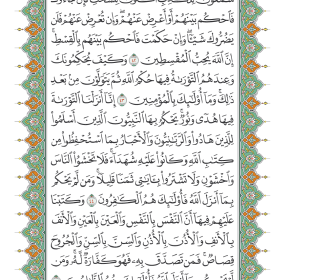 فَٱحْكُم بَيْنَهُمْ أَوْ أَعْرِضْ عَنْهُمْ ۖ وَإِن تُعْرِضْ عَنْهُمْ فَلَن
يَضُرُّوكَ شَيْـًٔا ۖ وَإِنْ حَكَمْتَ فَٱحْكُم بَيْنَهُم بِٱلْقِسْطِ ۚ
إِنَّ ٱللَّهَ يُحِبُّ ٱلْمُقْسِطِينَ ٤٢ وَكَيْفَ يُحَكِّمُونَكَ
وَعِندَهُمُ ٱلتَّوْرَىٰةُ فِيهَا حُكْمُ ٱللَّهِ ثُمَّ يَتَوَلَّوْنَ مِنۢ بَعْدِ
ذَٰلِكَ ۚ وَمَآ أُو۟لَـٰٓئِكَ بِٱلْمُؤْمِنِينَ ٤٣ إِنَّآ أَنزَلْنَا ٱلتَّوْرَىٰةَ
فِيهَا هُدًى وَنُورٌ ۚ يَحْكُمُ بِهَا ٱلنَّبِيُّونَ ٱلَّذِينَ أَسْلَمُوا۟
لِلَّذِينَ هَادُوا۟ وَٱلرَّبَّـٰنِيُّونَ وَٱلْأَحْبَارُ بِمَا ٱسْتُحْفِظُوا۟ مِن
كِتَـٰبِ ٱللَّهِ وَكَانُوا۟ عَلَيْهِ شُهَدَآءَ ۚ فَلَا تَخْشَوُا۟ ٱلنَّاسَ
وَٱخْشَوْنِ وَلَا تَشْتَرُوا۟ بِـَٔايَـٰتِى ثَمَنًا قَلِيلًا ۚ وَمَن لَّمْ يَحْكُم
بِمَآ أَنزَلَ ٱللَّهُ فَأُو۟لَـٰٓئِكَ هُمُ ٱلْكَـٰفِرُونَ ٤٤ وَكَتَبْنَا
عَلَيْهِمْ فِيهَآ أَنَّ ٱلنَّفْسَ بِٱلنَّفْسِ وَٱلْعَيْنَ بِٱلْعَيْنِ وَٱلْأَنفَ
بِٱلْأَنفِ وَٱلْأُذُنَ بِٱلْأُذُنِ وَٱلسِّنَّ بِٱلسِّنِّ وَٱلْجُرُوحَ
قِصَاصٌ ۚ فَمَن تَصَدَّقَ بِهِۦ فَهُوَ كَفَّارَةٌ لَّهُۥ ۚ وَمَن